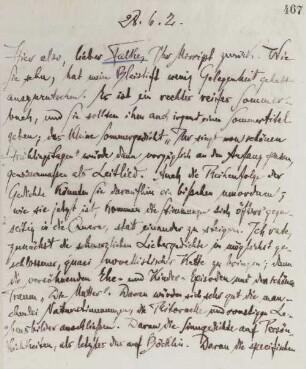 467
28.6.2.
Hier also, lieber Falke, Ihr Manuscript zurück. Wie
Sie sehn, hat mein Bleistift wenig Gelegenheit gehabt
auszurutschen. Es ist ein rechter reifer Sommer-
buch, und Sie sollten ihm auch irgend einen Sommertitel
geben; das kleine Sommergedicht „Ihr singt von schönen
Frühlingstagen" würde dann vorzüglich an den Anfang passen,
gewissermaßen als Leitlied. Auch die Reihenfolge der
Gedichte könnten Sie daraufhin ein bißchen umordnen;
wie sie jetzt ist, kommen die Stimmungen sich öfters gegen-
seitig in die Quere, statt einander zu steigern. Ich rate,
zunächst die schmerzlichen Liebesgedichte in möglichst ge-
schlossene, quasi novellistische Kette zu bringen; dann
die versöhnenden Ehe- und Kinder-Episoden mit den schönen
Die Mutter". Daran würden sich sehr gut die man-
cherlei Naturstimmungen, die und sonstigen Le-
bensbilder anschließen. Daran die Sinngedichte auf Persön-
lichkeiten, als letztes das auf Böcklin. Daran die specifischen